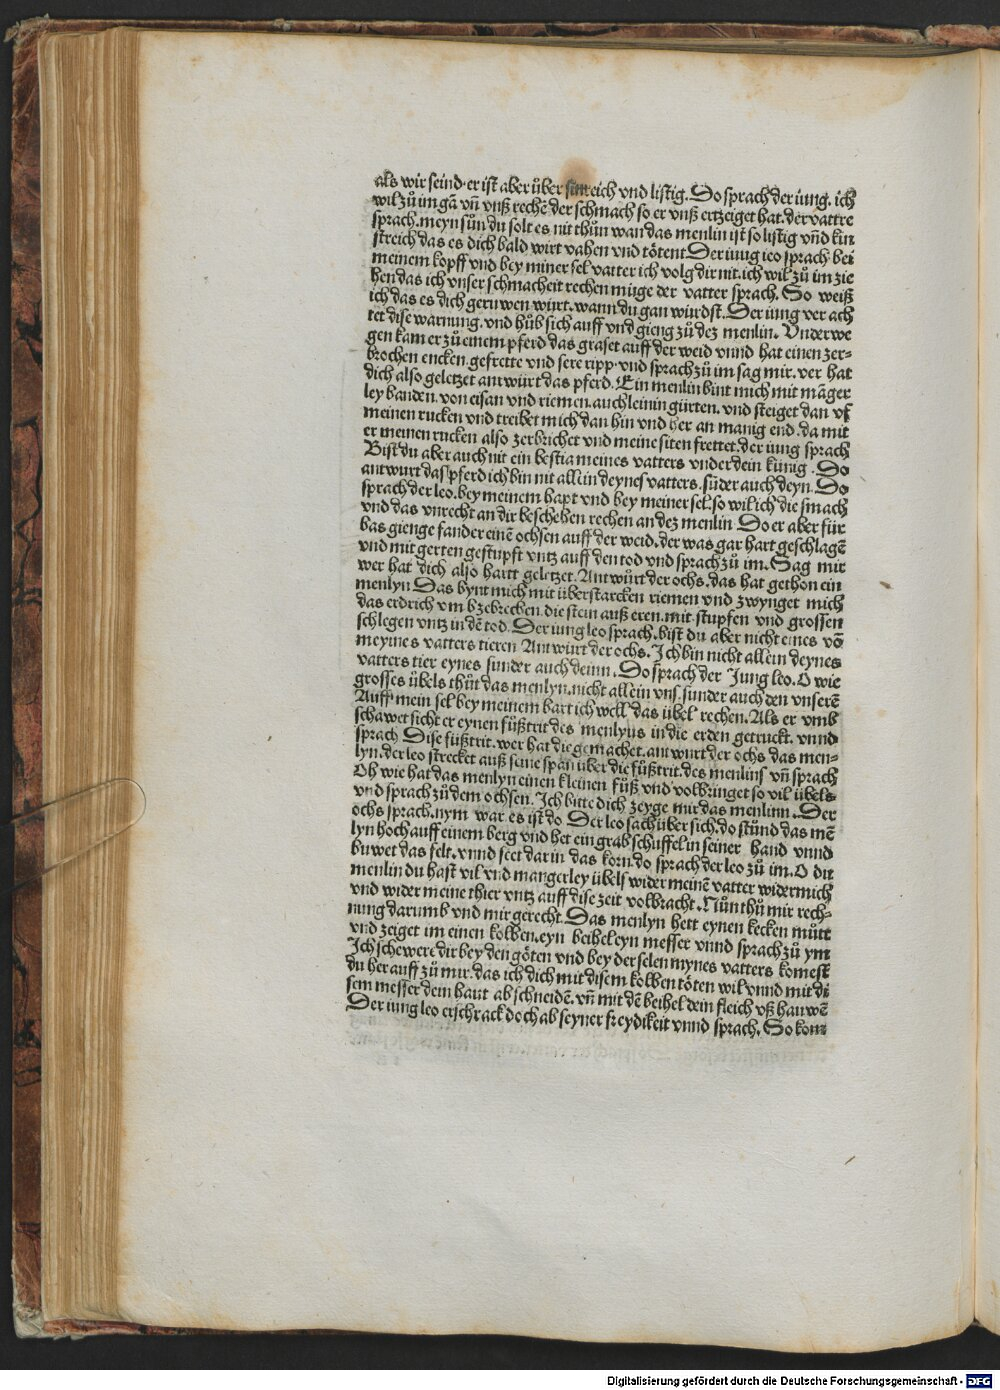 als wir seind·er ist aber über sinreich vnd listig. Do sprach der iung. ich
wil zů im gā vn̄ vnß rechē der schmach so er vnß ertzeiget hat. der vattre
sprach. meyn sůn du solt es nit thůn wan das menlin ist so listig vn̄d kün
streich das es dich bald wirt vahen vnd tötent Der iung leo sprach bei
meinem kopff vnd bey miner sel vatter ich volg dir nit. ich wil zů im zie
hen das ich vnser schmacheit rechen müge der vatter sprach. So weiß
ich das es dich geruwen würt. wann du gan würdst. Der iung ver ach
tet dise warnung. vnd hůb sich auff vnd gieng zů dez menlin. Vnder we
gen kam er zů einem pferd das graset auff der weid vnnd hat einen zer-
brochen encken. gefrette vnd sere ripp. vnd sprach zů im sag mir. ver hat
dich also geletzet antwürt das pferd. Ein menlin bint mich mit māger
ley banden. von eisan vnd riemen. auch leinin gürten. vnd steiget dan vf
meinen rucken vnd treibet mich dan hin vnd her an manig end. da mit
er meinen rucken also zerbrichet vnd meine siten frettet. der iung sprach
Bist du aber auch nit ein bestia meines vatters vnder dein künig. Do
antwurt das pferd ich bin nit allein deynes vatters. sūder auch deyn. Do
sprach der leo. bey meinem bapt vnd bey meiner sel. so wil ich die smach
vnd das vnrecht an dir beschehen rechen an dez menlin Do er aber für
bas gienge fand er einē ochsen auff der weid. der was gar hart geschlagē
vnd mit gerten gestupft vntz auff den tod vnd sprach zů im. Sag mir
wer hat dich also hartt geletzet. Antwürt der ochs. das hat gethon ein
menlyn Das bynt mich mit überstarcken riemen vnd zwynget mich
das erdrich vmb zebrechen. die stein auß eren. mit stupfen vnd grossen
schlegen vntz in dē tod. Der iung leo sprach. bist du aber nicht eines vō
meynes vatters tieren Antwürt der ochs. Ich bin nicht allein deynes
vatters tier eynes sunder auch deinn. Do sprach der Jung leo. O wie
grosses übels thůt das menlyn. nicht allein vns. sunder auch den vnserē
Auff mein sel bey meinem bart ich well das übel rechen. Als er vmb
schawet sicht er eynen fůßtrit des menlyns in die erden getruckt. vnnd
sprach Dise fůßtrit. wer hat die gemachet. antwurt der ochs das men-
lyn. der leo strecket auß seine span über die fůßtrit. des menlins vn̄ sprach
Oh wie hat das menlyn einen kleinen fůß vnd volbringet so vil übels
vnd sprach zů dem ochsen. Ich bitte dich zeyge mir das menlinn. Der
ochs sprach. nym war es ist do Der leo sach über sich. do stůnd das mē
lyn hoch auff einem berg vnd het ein grab schuffel in seiner hand vnnd
buwet das felt. vnnd seet dar in das korn. do sprach der leo zů im. O du
menlin du hast vil vnd mangerley übels wider meinē vatter wider mich
vnd wider meine thier vntz auff dise zeit volbracht. Nůn thů mir rech-
nung darumb vnd mir gerecht. Das menlyn hett eynen kecken můtt
vnd zeiget im einen kolben. eyn beihel eyn messer vnnd sprach zů ym
Ich schewere dir bey den göten vnd bey der selen mynes vatters komest
du her auff zů mir. das ich dich mit disem kolben töten wil. vnnd mit di
sem messer dem haut ab schneidē. vn̄ mit dē beihel dein fleich vß hauwē
Der iung leo erschrack doch ab seyner freydikeit vnnd sprach. So kom
Digitalisierung gefördert durch die Deutsche Forschungsgemeinschaft - DFG